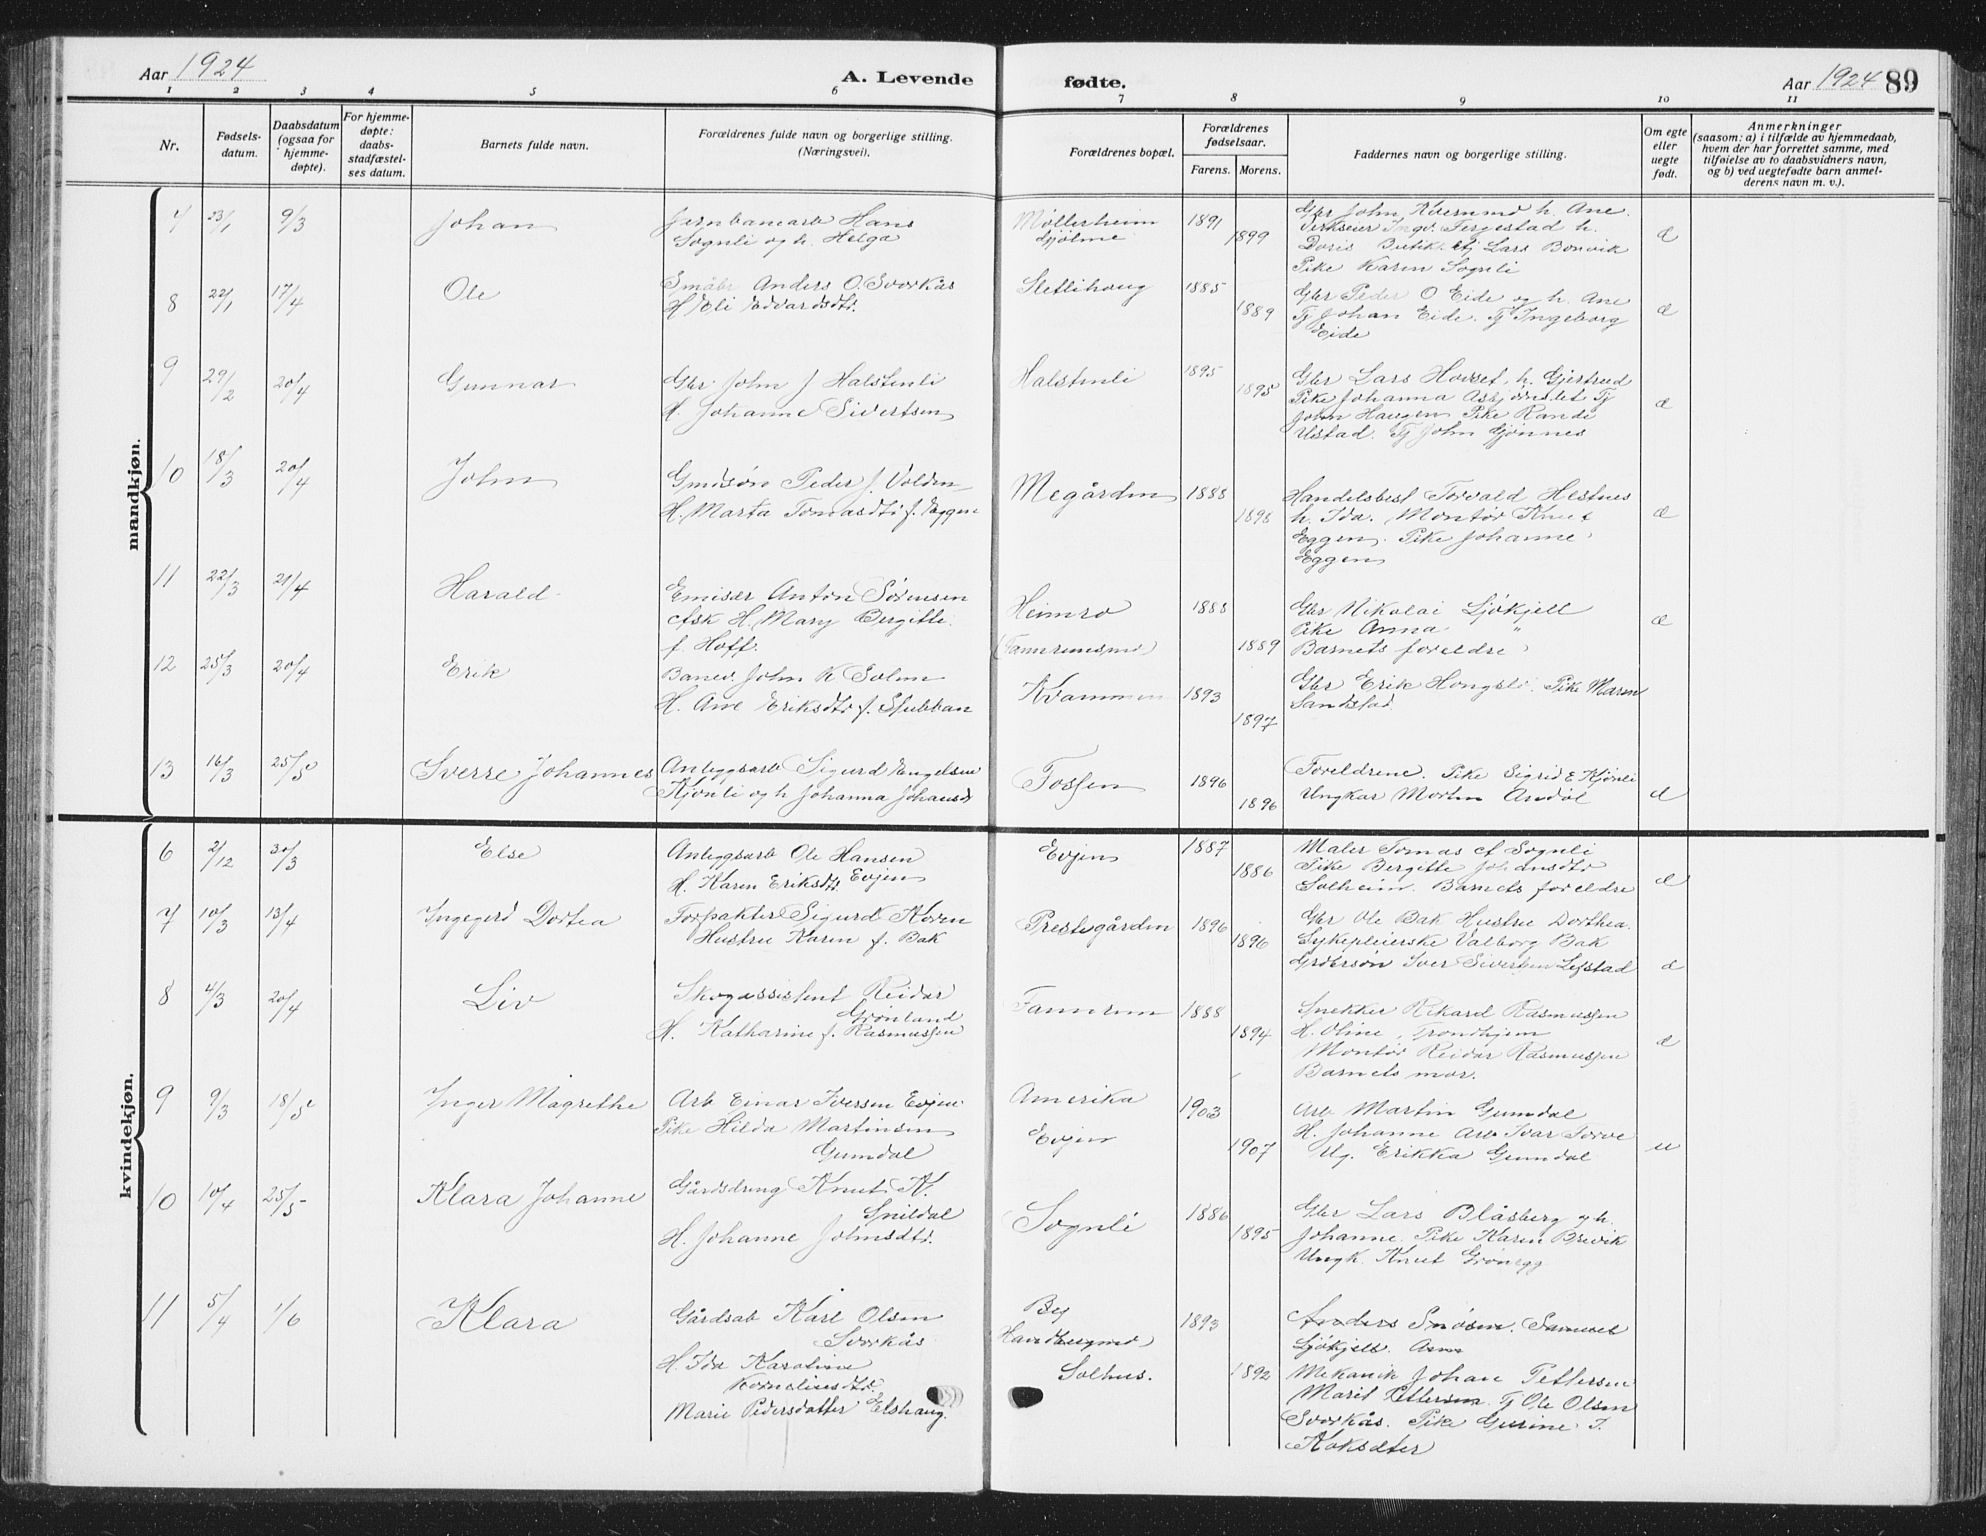 Aar 1924
A. Levende fødte.
Aar 1924 89
1 2 3 4 5 6 7 8 9 10 11
Nr.
Fødsels-
datum.
Daabsdatum
(ogsaa for
hjemme-
døpte).
For hjemme-
døpte:
daabs-
stadfæstel-
ses datum.
Barnets fulde navn.
Forældrenes fulde navn og borgerlige stilling.
(Næringsvei).
Forældrenes bopæl.
Forældrenes
fødselsaar.
Farens. Morens.
Faddernes navn og borgerlige stilling.
Om egte
eller
uegte
født.
Anmerkninger
(saasom: a) i tilfælde av hjemmedaab,
hvem der har forrettet samme, med
tilføielse av to daabsvidners navn,
og b) ved uegtefødte barn anmel-
derens navn m. v.).
mandkjøn.
23/1 9/3 Johan
Jernbanearb Hans
Sognli og h. Helga
Møllerheim
Gjølme
1891
1899
Gbr John Kvernmo h. Ane.
Verkseier Ingv. Fergestad h.
Doris Butikk Lars Bonvik
Pike Karen Sognli
æ
8 22/1 17/4 Ole
Småbr Anders O. Svorkås
H. Eli Edvardsdtr.
Slettihaug
1885
1889
Gbr Peder O Eide og h. Ane
Tj Johan Eide. Tj Ingeborg
Eide
æ
9 29/2 20/4 Gunnar
Gbr John J Halstenli
H. Johanne Sivertsen
Halstenli
1895
1895
Gbr Lars Hovset, h. Gjertrud
Pike Johanna Tj
John Haugen Pike Randi
Ustad. Tj John Gjønnes
æ
10 18/3 20/4 John
Gmdsøn Peder J. Volden
H. Marta Tomasdtr f. Eggen
Megården
1888
1898
Handelsbest Torvald Hestnes
h. Ida. Montør Knut
Eggen. Pike Johanne
Eggen
æ
11 22/3 21/4 Harald
Emisær Anton Sørensen
H. Mary Bergitte
f. Hoff.
Heimro
(Fannremsmo)
1888
1889
Gbr Nikolai Ljøkjell
Pike Anna "
Barnets foreldre
æ
12 25/3 20/4 Erik
Banev. John K Solem
H. Ane Eriksdtr f. Stubban
Kvammen
1893
1897
Gbr Erik Hongsli. Pike Maren
Sandstad
13 16/3 25/5 Sverre Johannes
Anleggsarb Sigurd Engelsen
Kjønli og h Johanna Johansdr
Fossen
1896
1896
Foreldrene. Pike Sigrid E Kjønli
Ungkar Morten Andøl
æ
kvindekjøn.
6 2/12 30/3 Else
Anleggsarb Ole Hansen
H. Karen Eriksdtr Evjen
Evjen
1887
1886
Maler Tomas Sognli
Pike Bergitte Johansdtr
Solheim. Barnets foreldre
æ
7 10/3 13/4 Ingegerd Dortea
Forpakter Sigurd Koren
Hustru Karen f. Bak
Prestegården
1896
1896
Gbr Ole Bak Hustru Dorthea.
Sykepleierske Valborg Bak
Grdbrsøn Iver Sivertsen Lefstad
æ
8 4/3 20/4 Liv
Skogassistent Reidar
Grönland
H. Katharine f. Rasmussen
Fannrem
1888
1894
Snekker Rikard Rasmussen
H. Oline, Trondhjem
Montør Reidar Rasmussen
Barnets mor.
æ
9 9/3 18/5 Inger Magrethe
Arb Einar Iversen Evjen
Pike Hilda Martinsen
Gumdal
Amerika
Evjen
1903
1907
Arb Martin Gumdal
H. Johanne Arb Ivar Torve
Ug. Erikka Gumdal
u
10 10/4 25/5 Klara Johanne
Gårdsdreng Knut K.
Snildal
H. Johanne Johnsdtr.
Sognli
1886
1895
Gbr Lars Blåsberg og h.
Johanne. Pike Karen Brevik
Ungk. Knut Grønegg
11 5/4 1/6 Klara
Gårdsab Karl Olsen
Svorkås
H. Ida Karoline
Kornelisdtr
Marie Pedersdatter Elshaug.
Solhus.
1893
1892
Anders Snøsen. Samuel
Ljøkjell.
Mekanik Johan Pettersen
Marit Pettersen. Tj Ole Olsen
Svorkås. Pike Gurine T.
Koksæter